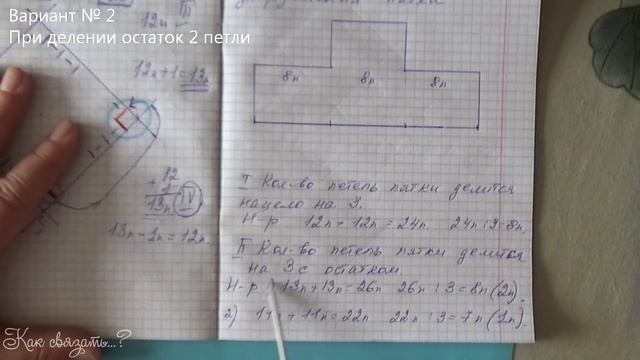 Вариант № 2
При делении остаток 2 петли
12п
III
12п+1=13п
1-1
1-1
12
+ 1
13п IV
13п-1п=12п
8п 8п 8п
I Кол-во петель пятки делится
нацело на 3.
Н-р 12п+12п=24п. 24п:3=8п
II Кол-во петель пятки делится
на 3 с остатком.
Н-р: 13п+13п=26п 26п:3=8п(2п).
2) 11п+11п=22п 22п:3=7п(1п).
Как связать...?